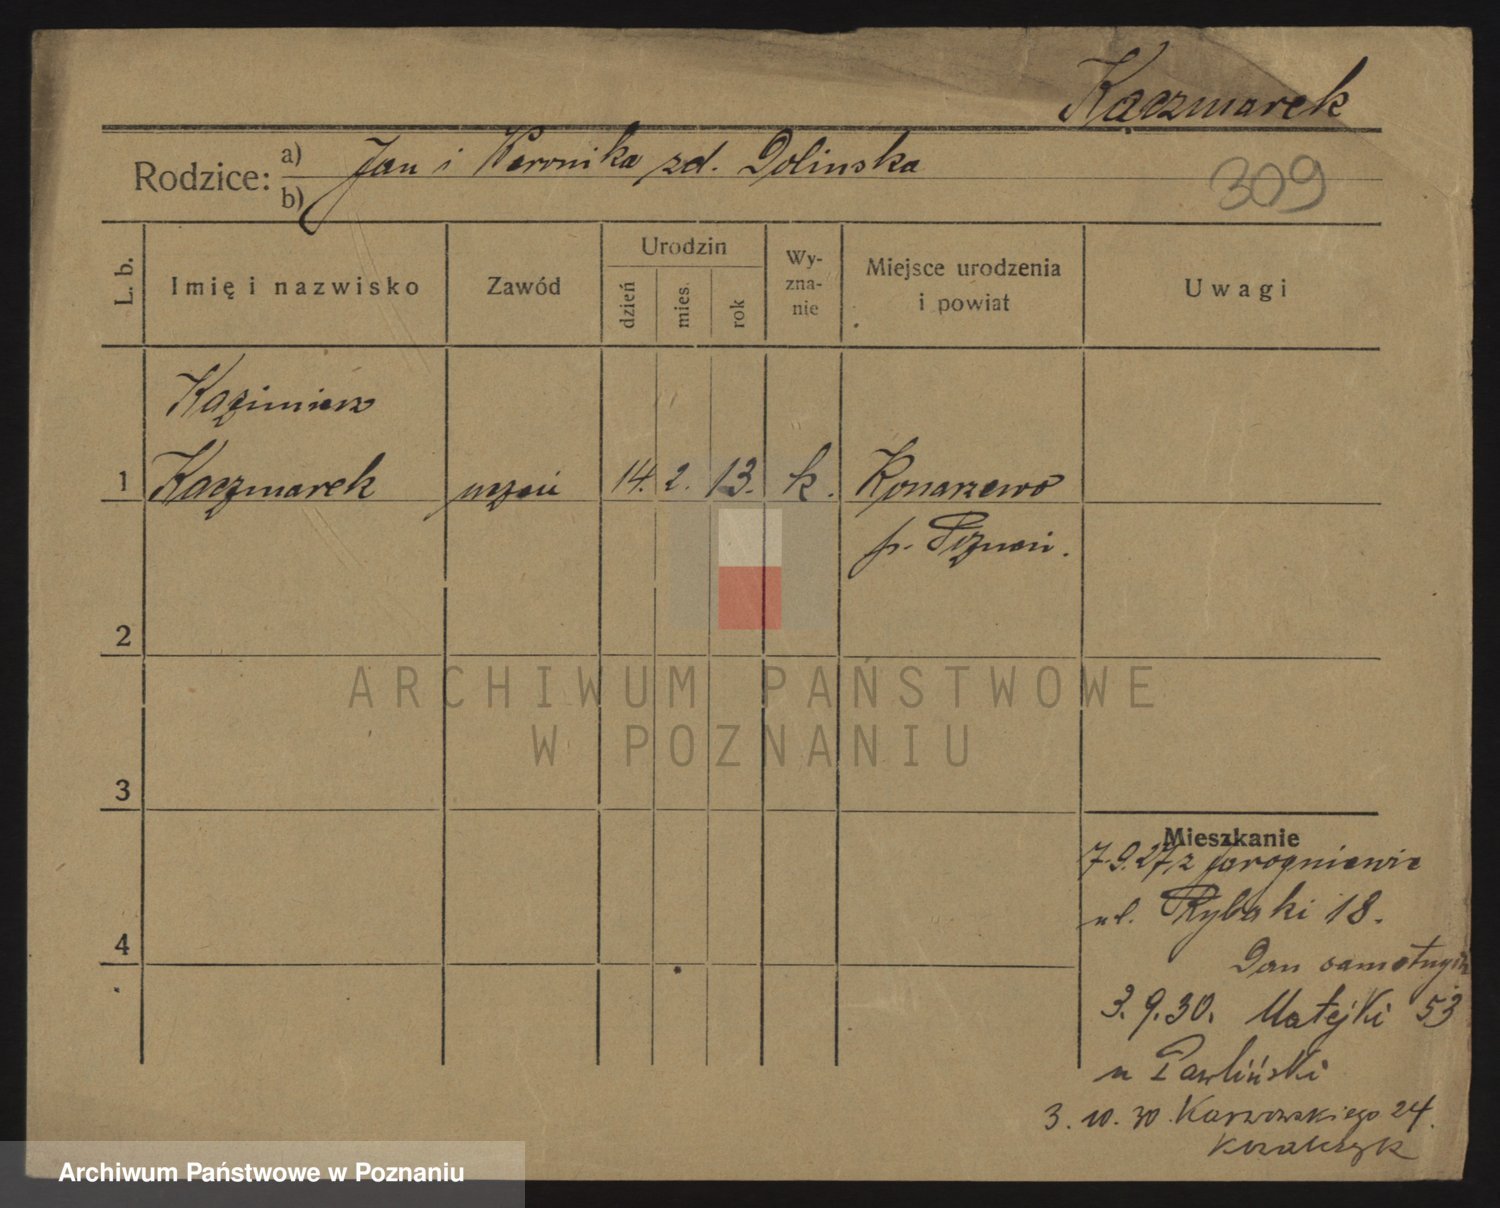 Kaczmarek
Rodzice: a) Jan i Weronika zd. Dolinska
b)
309
L. b.
Imię i nazwisko
Zawód
Urodzin
dzień
mies.
rok
Wy-
zna-
nie
Miejsce urodzenia
i powiat
Uwagi
Kazimierz
1 Kaczmarek uczeń 14. 2. 13. k. Konarzewo
p. Poznań.
2
3
4
ARCHIWUM PAŃSTWOWE
W POZNANIU
Mieszkanie
7.9.27. z Jarogniewic
ul. Rybaki 18.
Dom samotnych
3.9.30. Matejki 53
u Pawliński
3.10.30. Karwowskiego 24.
Archiwum Państwowe w Poznaniu